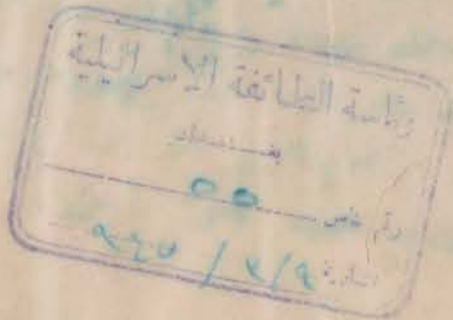 رئاسة الطائفة الاسرائيلية
بغداد
رقم خاص ٥٥
التاريخ ٩/٣/٩٤٥